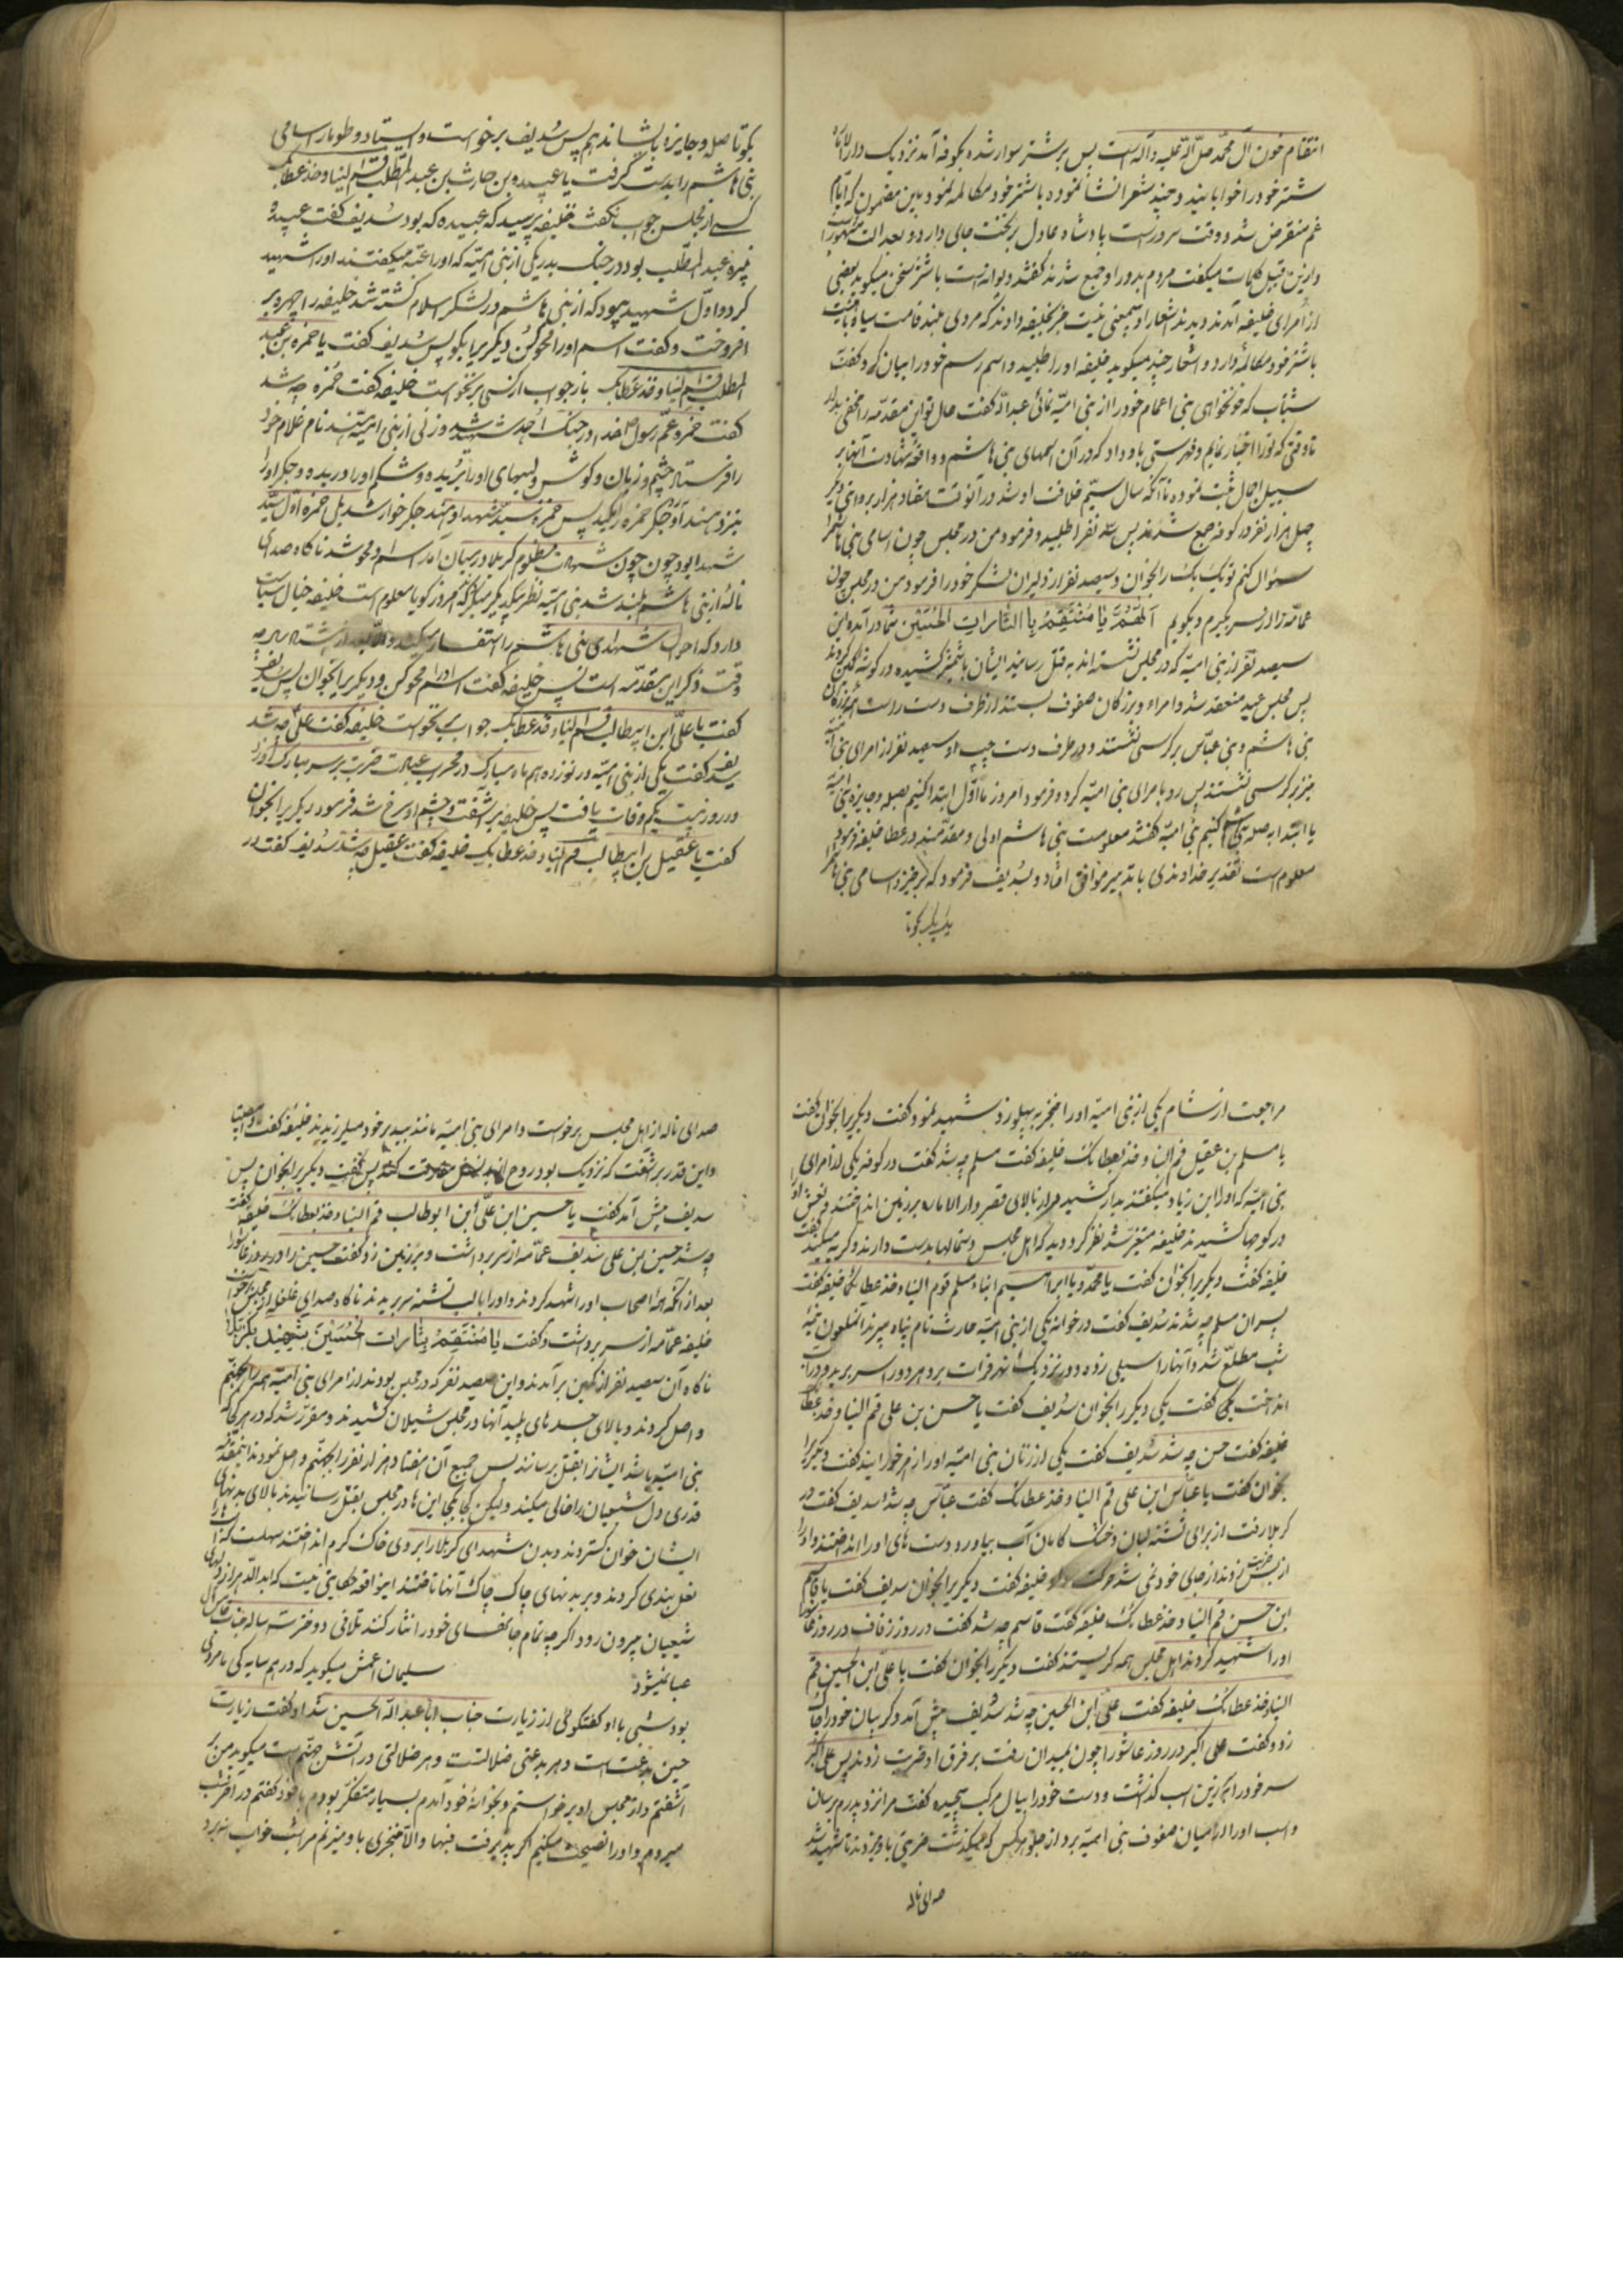 انتقام خون آل محمّد صلّی الله علیه وآله است پس بر شتر سوار شده بکوفه آمد نزدیک دارالاماره
شتر خود را خوابانید و چند شعر انشا نموده با شتر خود مکالمه نمود باین مضمون که ایّام
غم منقرض شد و وقت سرور است پادشاه عادل بر تخت جای دارد و بعدالت مشهور است
و ازین قبیل کلمات میکفت مردم بدور او جمع شدند کفتند دیوانه است با شتر سخن میکوید بعضی
از امرای خلیفه آمدند و دیدند اشعار او بیمعنی نیست خبر بخلیفه دادند که مردی بلند قامت سیاه
با شتر خود مکالمه دارد و اشعار چند میکوید خلیفه او را طلبید و اسم رسم خود را بیان کرد و کفت
شتاب که خونخواهی بنی اعمام خود را از بنی امیّه نمائی عبد الله کفت حال تو این مقدّمه را مخفی بدار
تا وقتی که تو را اخبار نمایم و فهرستی باو داد که در آن اسمهای بنی هاشم و واقعه شهادت آنها بر
سبیل اجمال ثبت نموده تا آنکه سال سیّم خلافت او شد در آنوقت هفتاد هزار بروایتی دیکر
چهل هزار نفر در کوفه جمع شدند پس سه نفر را طلبید و فرمود من در مجلس چون اسامی بنی هاشم را
سؤال کنم تو یک یک را بخوان و سیصد نفر از دلیران لشکر خود را فرمود من در مجلس چون
عمامه را از سر بکیرم و بکویم اللّهُمَّ یا مُنتَقِمُ بِالثّاراتِ الحُسَین شما در آمده این
سیصد نفر از بنی امیّه که در مجلس نشسته اند به قتل رسانید ایشان با شمشیر کشیده در کوشه کمین کردند
پس مجلس عید منعقد شد و امراء و بزرکان صفوف بستند از طرف دست راست بزرکان
بنی هاشم و بنی عبّاس بر کرسی نشستند و در طرف دست چپ او سیصد نفر از امرای بنی امیّه
نیز بر کرسی نشستند پس رو بامرای بنی امیّه کرد و فرمود امروز ما اوّل ابتدا کنیم بصله و جایزه بنی امیّه
یا ابتدا به صله بنی هاشم کنیم بنی امیّه کفتند معلومست بنی هاشم اولی و مقدّمند در عطا خلیفه فرمود
معلوم است تقدیر خداوندی با تدبیر موافق افتاد و بسُدیف فرمود که برخیز و اسامی بنی هاشم را
یک یک بکو تا
بکو تا صله و جایزه بایشان دهم پس سُدیف برخواست و ایستاد و طومار اسامی
بنی هاشم را بدست کرفت یا عبیده بن حارث بن عبد المطّلب قُم الینا و خذ عطایک
کسی از مجلس جواب نکفت خلیفه پرسید که عبیده که بود سُدیف کفت عبیده
نبیره عبد المطّلب بود در جنک بدر یکی از بنی امیّه که او را عتبه میکفتند او را شهید
کرد و اوّل شهید بود که از بنی هاشم در لشکر اسلام کشته شد خلیفه را چهره بر
افروخت و کفت اسم او را محو کُن دیکریرا بکو پس سُدیف کفت یا حمزه بن عبد
المطلب قم الینا و خذ عطایک باز جواب از کسی برنخواست خلیفه کفت حمزه چه شد
کفت حمزه عمّ رسول خدا در جنک اُحد شهید شد و زنی از بنی امیّه هند نام غلام خود
را فرستاد چشم و زبان و کوش و لبهای او را بُریده و شکم او را دریده و جکر او را
نزد هند آورد جکر حمزه را مکید پس حمزه سیّد شهدا و هند جکر خوار شد بلی حمزه اوّل سیّد
شهدا بود چون چون شهادت مظلوم کربلا در میان آمد اسم او محو شد ناکاه صدای
ناله از بنی هاشم بلند شد بنی امیّه نظر بیکدیکر میکردند امروز کویا معلوم است خلیفه خیال سیاست
دارد که احوال شهدای بنی هاشم را استفسار میکند
وقت ذکر این مقدّمه است پس خلیفه کفت اسم او را محو کن و دیکریرا بخوان پس سدیف
کفت یا علیّ ابن ابیطالب قم الینا و خذ عطایک جوابی نخواست خلیفه کفت علی چه شد
سدیف کفت یکی از بنی امیّه در نوزدهم ماه مبارک در محراب عبادت ضربت بر سر مبارک او زد
و در روز بیست یکم وفات یافت پس خلیفه بر آشفت و چشم او سرخ شد فرمود دیکریرا بخوان
کفت یا عقیل بن ابیطالب قم الینا و خذ عطایک خلیفه کفت عقیل چه شد سدیف کفت در
مراجعت از شام یکی از بنی امیّه او را خنجر به پهلو زد شهید نمود کفت دیکریرا بخوان کفت
یا مسلم بن عقیل قم الینا و خذ عطایک خلیفه کفت مسلم چه شد کفت در کوفه یکی از امرای
بنی امیّه که او را ابن زیاد میکفتند بدار کشید از بالای قصر دار الاماره بر زمین انداختند و نعش او
در کوچها کشیدند خلیفه متغیّر شد نظر کرد دید که اهل مجلس دستمالها بدست دارند و کریه میکنند
خلیفه کفت دیکریرا بخوان کفت یا محمّد و یا ابراهیم ابناء مسلم قوم الینا و خذ عطایکما خلیفه کفت
پسران مسلم چه شدند سُدیف کفت در خوانه یکی از بنی امیّه حارث نام پناه بردند آنملعون نیمه
شب مطلّع شد و آنها را سیلی زده و در نزدیک نهر فرات برد هر دو را سر برید و در آب
انداخت کفت یکی دیکر را بخوان سُدیف کفت یا حسن بن علی قم الینا و خذ عطایک
خلیفه کفت حسن چه شد سُدیف کفت یکی از زنان بنی امیّه او را زهر خورانید کفت دیکریرا
بخوان کفت یا عبّاس ابن علی قم الینا و خذ عطایک کفت عبّاس چه شد سدیف کفت در
کربلا رفت از برای تشنه لبان و خشک کامان آب بیاورد دست های او را انداختند و او را
خلیفه کفت دیکریرا بخوان سدیف کفت یا قاسم
ابن حسن قم الینا و خذ عطایک خلیفه کفت قاسم چه شد کفت در روز زفاف در روز عاشورا
او را شهید کردند اهل مجلس همه کریستند کفت دیکریرا بخوان کفت یا علیّ ابن الحسین قم
الینا و خذ عطایک خلیفه کفت علیّ ابن الحسین چه شد سُدیف پیش آمد و کریبان خود را چاک
زد و کفت علی اکبر در روز عاشورا چون بمیدان رفت بر فرق او ضربت زدند پس علی اکبر
سر خود را بر زین اسب کذاشت و دست خود را بیال مرکب پیچیده کفت مرا نزد پدرم برسان
و اسب او را در میان صفوف بنی امیّه برد از جلو هر کس که میکذشت ضربتی باو میزدند تا شهید شد
صدای ناله
صدای ناله از اهل مجلس برخواست و امرای بنی امیّه مانند بید بر خود میلرزیدند خلیفه کفت
و این قدر بر آشفت که نزدیک بود روح از بدنش مفارقت کند پس کفت دیکریرا بخوان پس
سدیف پیش آمد کفت یا حسین ابن علیّ ابن ابوطالب قم الینا و خذ عطایک خلیفه کفت
چه شد حسین بن علی سُدیف عمّامه از سر برداشت و بر زمین زد و کفت حسین را در روز عاشورا
بعد از آنکه همه اصحاب او را شهید کردند و او را با لب تشنه سر بریدند ناکاه صدای غلغله از مجلس برخواست
خلیفه عمّامه از سر برداشت و کفت یا مُنتَقِمُ بِثاراتِ الحُسَین
ناکاه آن سیصد نفر از کمین برآمدند و این سیصد نفر که در مجلس بودند از امرای بنی امیّه همه را بجهنّم
واصل کردند و بالای جسدهای پلید آنها در مجلس شیلان کشیدند و مقرّر شد که در هر کجا که
بنی امیّه باشد ایشانرا بقتل برسانند پس جمیع آن هفتاد هزار نفر را بجهنّم واصل نمودند اینمقدّمه
قدری دل شیعیان را خالی میکند ولیکن کجا بکجا این ها در مجلس بقتل رسانیدند بالای بدنهای
ایشان خوان کستردند و بدن شهدای کربلا را بر روی خاک کرم انداختند سهلست که اسبان را
نعل بندی کردند و بر بدنهای چاک چاک آنها تاختند این واقعه حکایتی نیست که ابد الدّهر از دلهای
شیعیان بیرون رود اکر چه تمام جانهای خود را نثار کنند تلافی دو دختر سه ساله جناب
عبا نمیشود سلیمان اعمش میکوید که در همسایه کی ما مردی
بود شبی با او کفتکوئی از زیارت جناب ابا عبد الله الحسین شد او کفت زیارت
حسین بدعت است و هر بدعتی ضلالتست و هر ضلالتی در آتش جهنّم است میکوید من بر
آشفتم و از مجلس او برخواستم و بخوانه خود آمدم بسیار متفکّر بودم با خود کفتم در آخر شب
میروم و او را نصیحت میکنیم اکر پذیرفت فبها والّا خنجری باو میزنم مرا شب خواب نبرد